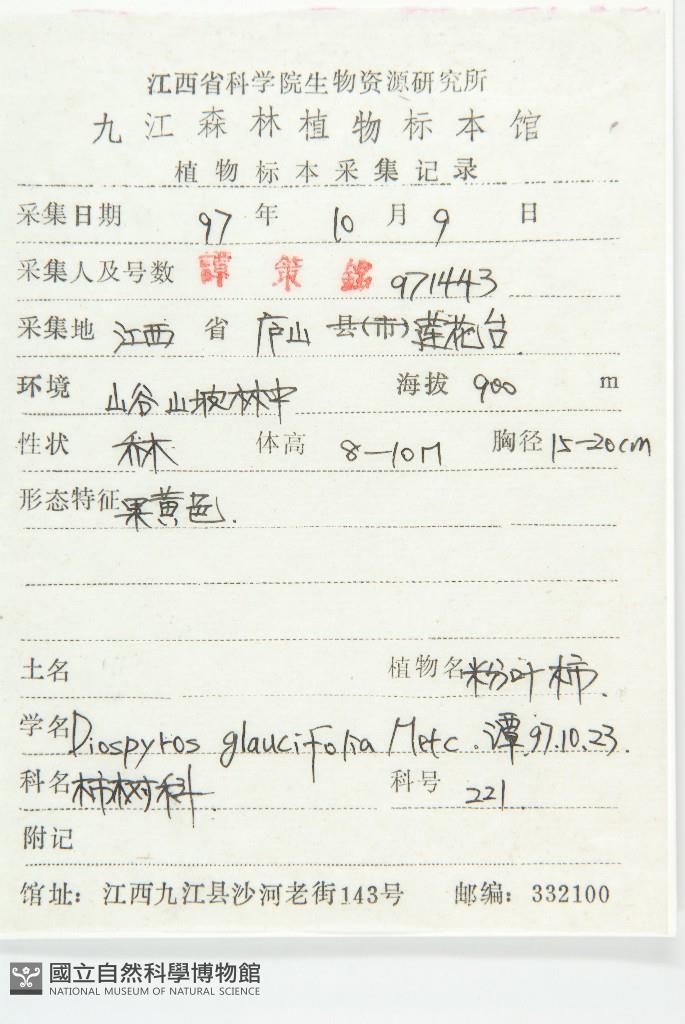 江西省科学院生物资源研究所
九江森林植物标本馆
植物标本采集记录
采集日期 97 年 10 月 9 日
采集人及号数 譚策銘 971443
采集地 江西 省 庐山 县(市) 莲花台
环境 山谷山坡林中 海拔 900 m
性状 乔木 体高 8—10M 胸径 15—20cm
形态特征 果黄色.
土名 植物名 粉叶柿.
学名 Diospyros glaucifolia Metc. 潭, 97.10.23.
科名 柿树科. 科号 221
附记
馆址：江西九江县沙河老街143号 邮编：332100
國立自然科學博物館
NATIONAL MUSEUM OF NATURAL SCIENCE